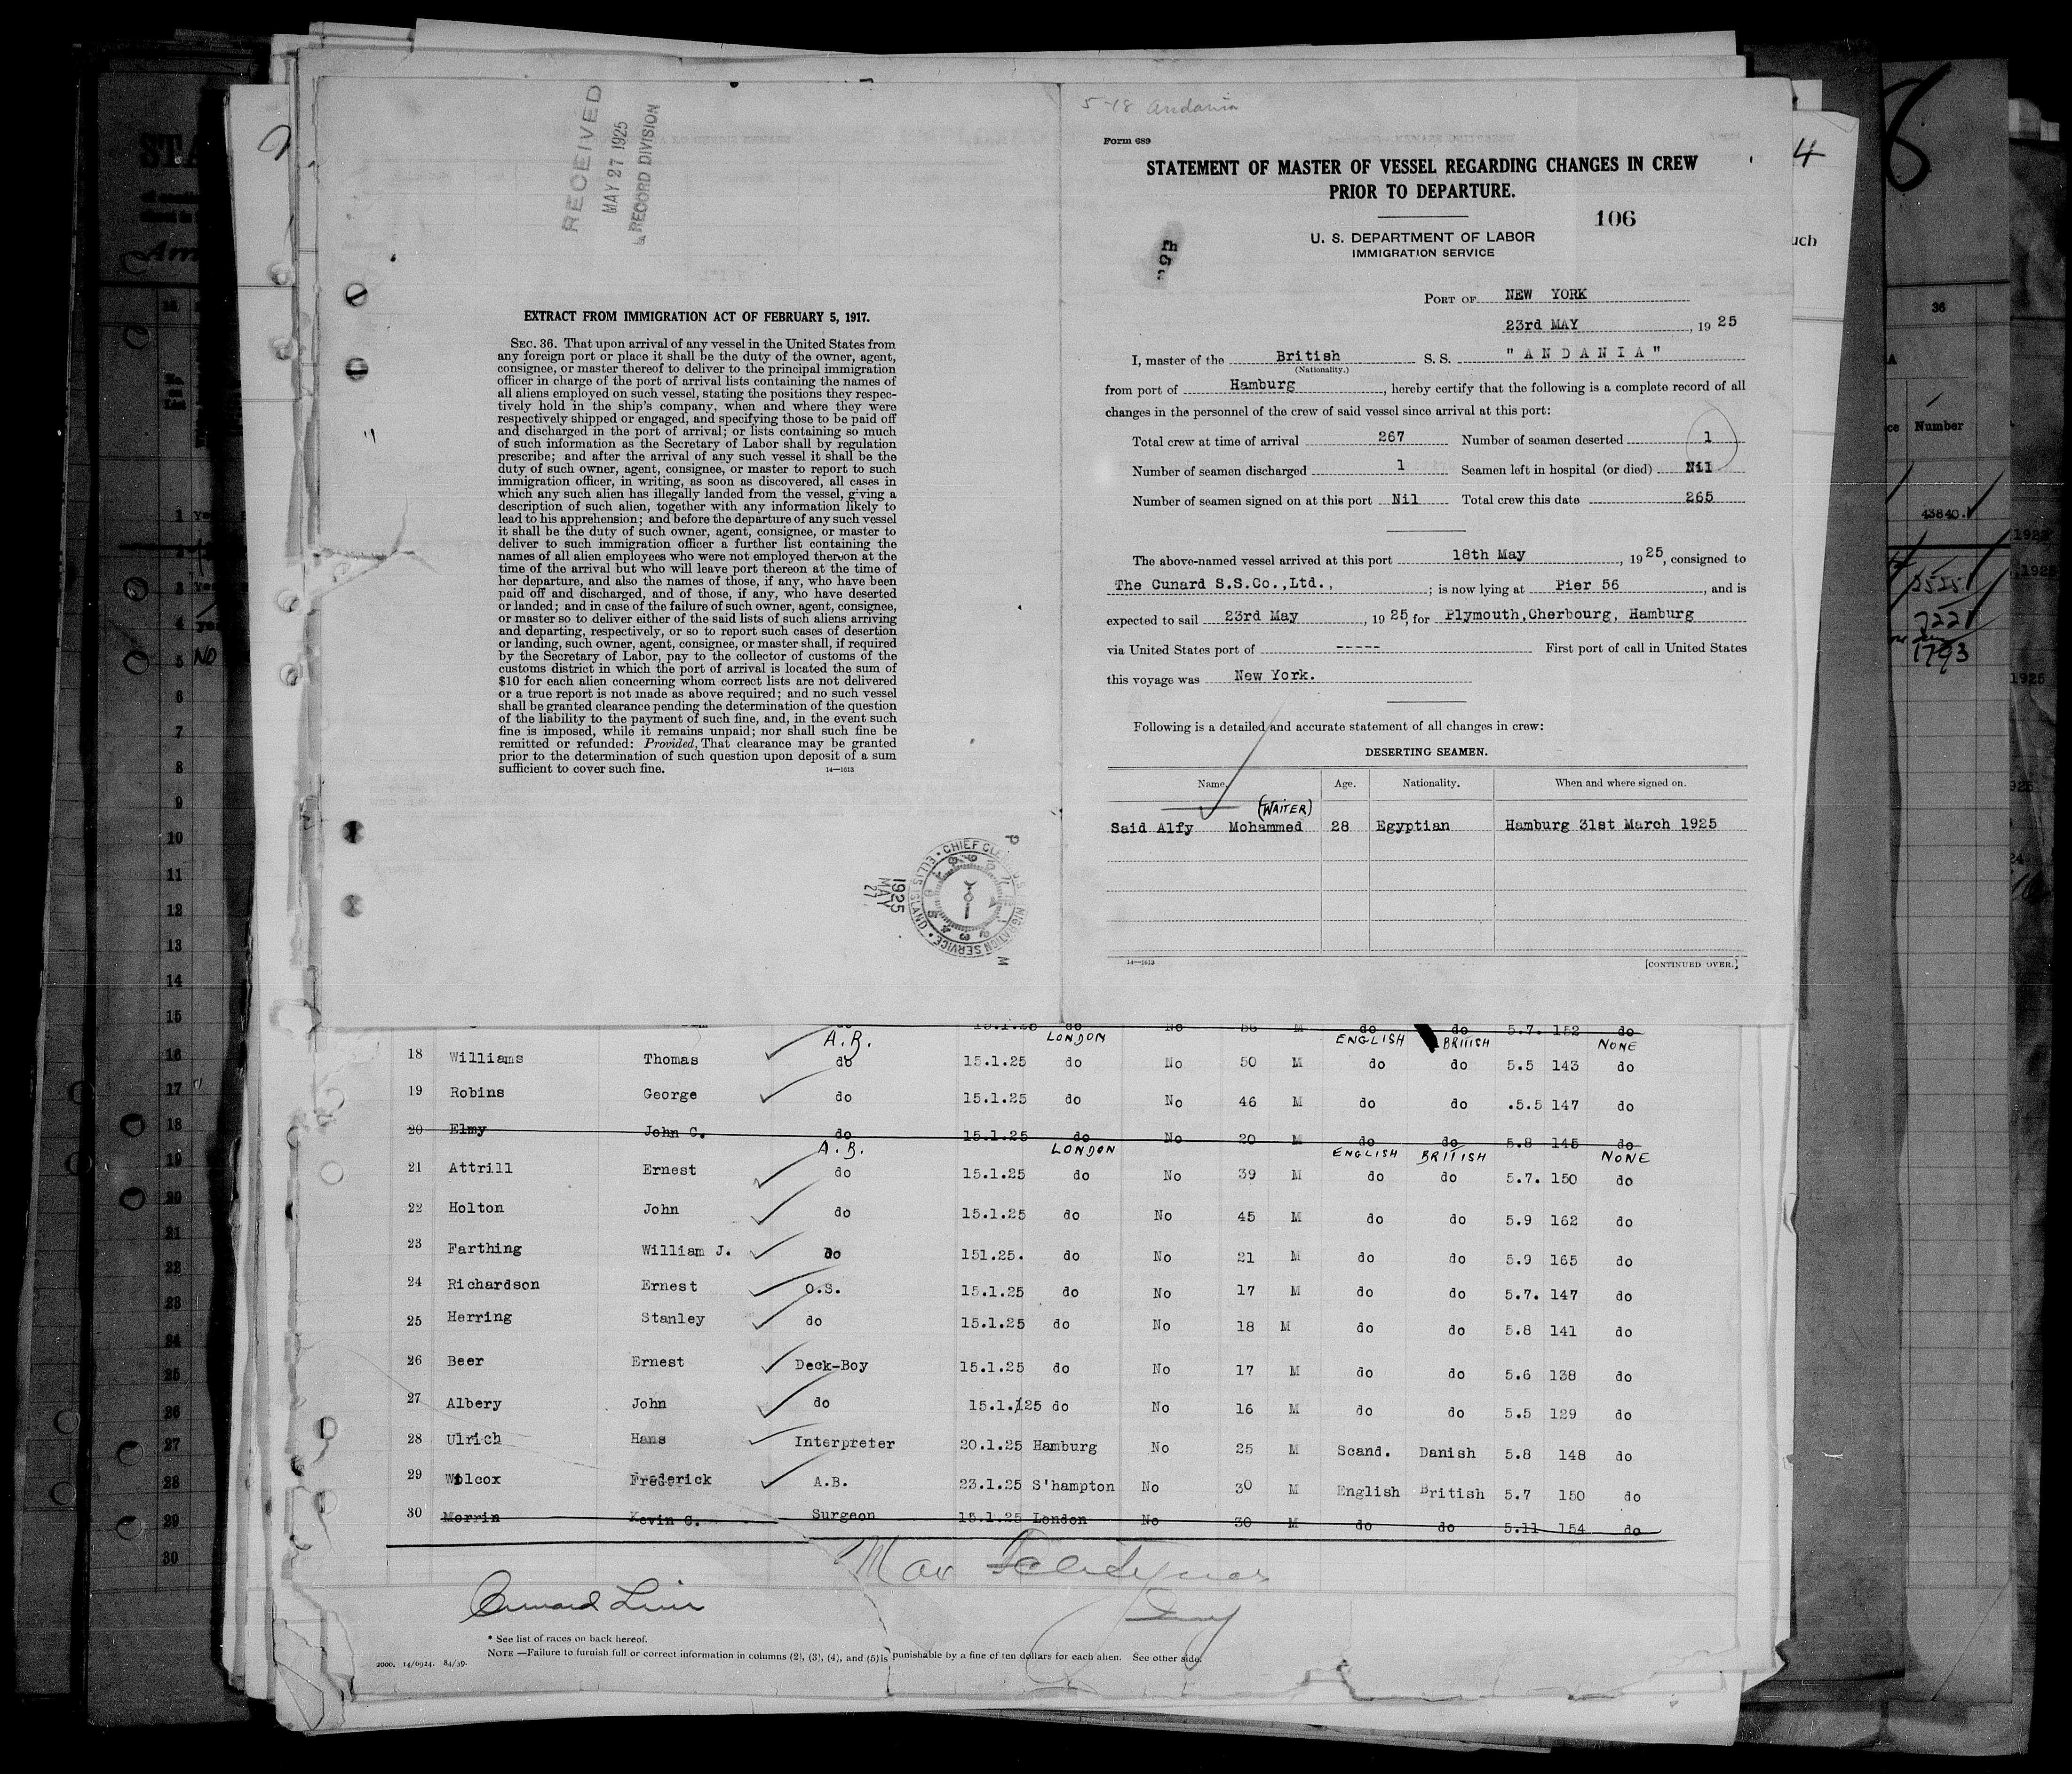 RECEIVED
MAY 27 1925
RECORD DIVISION
EXTRACT FROM IMMIGRATION ACT OF FEBRUARY 5, 1917.
SEC. 36. That upon arrival of any vessel in the United States from
any foreign port or place it shall be the duty of the owner, agent,
consignee, or master thereof to deliver to the principal immigration
officer in charge of the port of arrival lists containing the names of
all aliens employed on such vessel, stating the positions they respec-
tively hold in the ship's company, when and where they were
respectively shipped or engaged, and specifying those to be paid off
and discharged in the port of arrival; or lists containing so much
of such information as the Secretary of Labor shall by regulation
prescribe; and after the arrival of any such vessel it shall be the
duty of such owner, agent, consignee, or master to report to such
immigration officer, in writing, as soon as discovered, all cases in
which any such alien has illegally landed from the vessel, giving a
description of such alien, together with any information likely to
lead to his apprehension; and before the departure of any such vessel
it shall be the duty of such owner, agent, consignee, or master to
deliver to such immigration officer a further list containing the
names of all alien employees who were not employed thereon at the
time of the arrival but who will leave port thereon at the time of
her departure, and also the names of those, if any, who have been
paid off and discharged, and of those, if any, who have deserted
or landed; and in case of the failure of such owner, agent, consignee,
or master so to deliver either of the said lists of such aliens arriving
and departing, respectively, or so to report such cases of desertion
or landing, such owner, agent, consignee, or master shall, if required
by the Secretary of Labor, pay to the collector of customs of the
customs district in which the port of arrival is located the sum of
$10 for each alien concerning whom correct lists are not delivered
or a true report is not made as above required; and no such vessel
shall be granted clearance pending the determination of the question
of the liability to the payment of such fine, and, in the event such
fine is imposed, while it remains unpaid; nor shall such fine be
remitted or refunded: Provided, That clearance may be granted
prior to the determination of such question upon deposit of a sum
sufficient to cover such fine.
14—1613
1925
MAY
27
5-18 Andania
Form 689
STATEMENT OF MASTER OF VESSEL REGARDING CHANGES IN CREW
PRIOR TO DEPARTURE.
106
U. S. DEPARTMENT OF LABOR
IMMIGRATION SERVICE
PORT OF NEW YORK
23rd MAY, 19 25
I, master of the British S. S. "ANDANIA"
(Nationality.)
from port of Hamburg, hereby certify that the following is a complete record of all
changes in the personnel of the crew of said vessel since arrival at this port:
Total crew at time of arrival 267 Number of seamen deserted 1
Number of seamen discharged 1 Seamen left in hospital (or died) Nil
Number of seamen signed on at this port Nil Total crew this date 265
The above-named vessel arrived at this port 18th May, 19 25, consigned to
The Cunard S.S.Co.,Ltd., ; is now lying at Pier 56, and is
expected to sail 23rd May, 19 25, for Plymouth,Cherbourg, Hamburg
via United States port of ----- First port of call in United States
this voyage was New York.
Following is a detailed and accurate statement of all changes in crew:
DESERTING SEAMEN.
Name. Age. Nationality. When and where signed on.
(WAITER)
Said Alfy Mohammed 28 Egyptian Hamburg 31st March 1925
14—1613
[CONTINUED OVER.]
A.B. LONDON ENGLISH BRITISH NONE
18 Williams Thomas do 15.1.25 do No 50 M do do 5.5 143 do
19 Robins George do 15.1.25 do No 46 M do do .5.5 147 do
20 Elmy John C. do 15.1.25 do No 20 M do do 5.8 145 do
A.B. LONDON ENGLISH BRITISH NONE
21 Attrill Ernest do 15.1.25 do No 39 M do do 5.7. 150 do
22 Holton John do 15.1.25 do No 45 M do do 5.9 162 do
23 Farthing William J. do 151.25. do No 21 M do do 5.9 165 do
24 Richardson Ernest O.S. 15.1.25 do No 17 M do do 5.7. 147 do
25 Herring Stanley do 15.1.25 do No 18 M do do 5.8 141 do
26 Beer Ernest Deck-Boy 15.1.25 do No 17 M do do 5.6 138 do
27 Albery John do 15.1.25 do No 16 M do do 5.5 129 do
28 Ulrich Hans Interpreter 20.1.25 Hamburg No 25 M Scand. Danish 5.8 148 do
29 Wilcox Frederick A.B. 23.1.25 S'hampton No 30 M English British 5.7 150 do
30 Morrin Kevin C. Surgeon 15.1.25 London No 30 M do do 5.11 154 do
Cunard Line
* See list of races on back hereof.
NOTE —Failure to furnish full or correct information in columns (2), (3), (4), and (5) is punishable by a fine of ten dollars for each alien. See other side.
2000. 14/6924. 84/39.
36
Number
43840